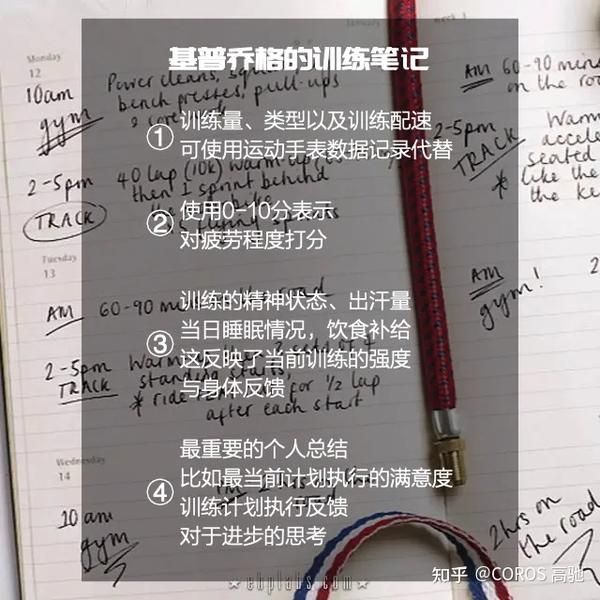 基普乔格的训练笔记
① 训练量、类型以及训练配速
可使用运动手表数据记录代替
② 使用0-10分表示
对疲劳程度打分
③ 训练的精神状态、出汗量
当日睡眠情况，饮食补给
这反映了当前训练的强度
与身体反馈
④ 最重要的个人总结
比如最当前计划执行的满意度
训练计划执行反馈
对于进步的思考
Monday
12
10am
gym
Power cleans,
bench presses, pull-ups
2-5pm
TRACK
40 lap (10k) warm up
then 1 sprint behind
Tuesday
13
AM 60-90 mins
2-5pm
TRACK
standing starts,
* ride for 1/2 lap
after each start
Wednesday
14
10am
gym
week 1
AM 60-90 mins
on the road
2-5pm
TRACK
Warm
accele
seated
* like the
the ke
AM
gym!
2
2hrs on
the road
★ ehplabs.com ★
知乎 @COROS 高驰